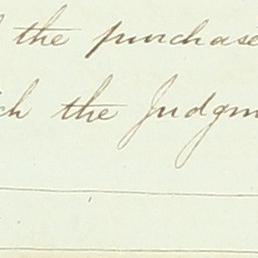 the purchase
the Judgm